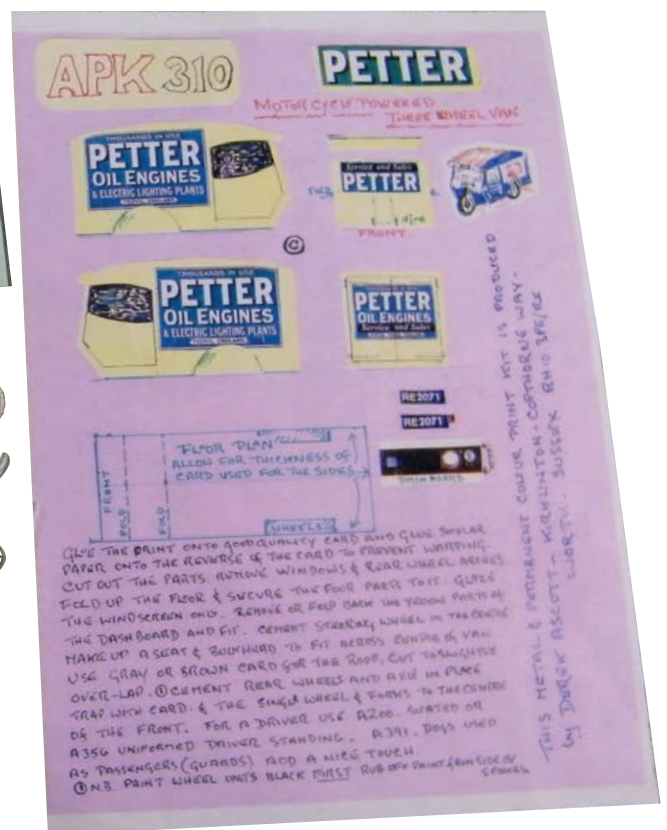 APK 310
PETTER
MOTORCYCLE POWERED
THREE WHEEL VAN
THOUSANDS IN USE
PETTER
OIL ENGINES
& ELECTRIC LIGHTING PLANTS
YEOVIL, ENGLAND
Service and Sales
PETTER
FOLD
FRONT
©
THOUSANDS IN USE
PETTER
OIL ENGINES
& ELECTRIC LIGHTING PLANTS
YEOVIL, ENGLAND
PETTER
OIL ENGINES
Service and Sales
RE2071
RE2071
DASHBOARD
FLOOR PLAN
ALLOW FOR THICKNESS OF
CARD USED FOR THE SIDES
FRONT
FOLD
FOLD
WHEELS
GLUE THE PRINT ONTO GOOD QUALITY CARD AND GLUE SIMILAR
PAPER ONTO THE REVERSE OF THE CARD TO PREVENT WARPING.
CUT OUT THE PARTS REMOVE WINDOWS & REAR WHEEL ARCHES.
FOLD UP THE FLOOR & SECURE THE FOUR PARTS TO IT. GLAZE
THE WINDSCREEN ONLY. REMOVE OR FOLD BACK THE YELLOW PARTS OF
THE DASHBOARD AND FIT. CEMENT STEERING WHEEL IN THE CENTRE
MAKE UP A SEAT & BULKHEAD TO FIT ACROSS CENTRE OF VAN
USE GRAY OR BROWN CARD FOR THE ROOF. CUT TO SLIGHTLY
OVER-LAP. ① CEMENT REAR WHEELS AND AXLE IN PLACE
TRAP WITH CARD. & THE SINGLE WHEEL & FORKS TO THE CENTRE
OF THE FRONT. FOR A DRIVER USE A200. SEATED OR
A356 UNIFORMED DRIVER STANDING. A391. DOGS USED
AS PASSENGERS (GUARDS) ADD A NICE TOUCH.
① N.B. PAINT WHEEL UNITS BLACK FIRST RUB OFF PAINT FROM SIDE OF
SPOKES
THIS METAL & PERMANENT COLOUR PRINT KIT IS PRODUCED
by DEREK ASCOTT - KIRKLINTON - COPTHORNE WAY -
WORTH. SUSSEX RH10